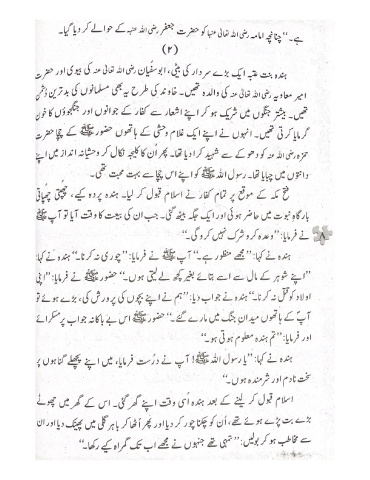 ہے۔“ چنانچہ امامہ رضی اللہ تعالیٰ عنہا کو حضرت جعفر رضی اللہ عنہ کے حوالے کر دیا گیا۔
(۲)
ہندہ بنت عتبہ ایک بڑے سردار کی بیٹی، ابوسفیان رضی اللہ تعالیٰ عنہ کی بیوی اور حضرت
امیر معاویہ رضی اللہ تعالیٰ عنہ کی والدہ تھیں۔ خاوند کی طرح یہ بھی مسلمانوں کی بدترین دشمن
تھیں۔ بیشتر جنگوں میں شریک ہو کر اپنے اشعار سے کفار کے جوانوں اور جنگجوؤں کا خون
گرمایا کرتی تھیں۔ انہوں نے اپنے ایک غلام وحشی کے ہاتھوں حضور ﷺ کے چچا حضرت
حمزہ رضی اللہ عنہ کو دھوکے سے شہید کرا دیا تھا۔ پھر اُن کا کلیجہ نکال کر وحشیانہ انداز میں اپنے
دانتوں میں چبایا تھا۔ رسول اللہ ﷺ کو اپنے اس چچا سے بہت محبت تھی۔
فتح مکہ کے موقع پر تمام کفار نے اسلام قبول کر لیا۔ ہندہ پردہ کیے، چھپتی چھپاتی
بارگاہِ نبوت میں حاضر ہوئی اور ایک جگہ بیٹھ گئی۔ جب ان کی بیعت کا وقت آیا تو آپ ﷺ
نے فرمایا: ”وعدہ کرو شرک نہیں کرو گی۔“
۸
ہندہ نے کہا: ”مجھے منظور ہے۔“ آپ ﷺ نے فرمایا: ”چوری نہ کرنا۔“ ہندہ نے کہا:
”اپنے شوہر کے مال سے اسے بتائے بغیر کچھ لے لیتی ہوں۔“ حضور ﷺ نے فرمایا: ”اپنی
اولاد کو قتل نہ کرنا۔“ ہندہ نے جواب دیا: ”ہم نے اپنے بچوں کی پرورش کی، بڑے ہوئے تو
آپؐ کے ہاتھوں میدانِ جنگ میں مارے گئے۔“ حضور ﷺ اس بے باکانہ جواب پر مسکرائے
اور فرمایا: ”تم ہندہ معلوم ہوتی ہو۔“
ہندہ نے کہا: ”یا رسول اللہ ﷺ! آپ نے درست فرمایا، میں اپنے پچھلے گناہوں پر
سخت نادم اور شرمندہ ہوں۔“
اسلام قبول کر لینے کے بعد ہندہ اُسی وقت اپنے گھر گئی۔ اس کے گھر میں چھوٹے
بڑے بت پڑے ہوئے تھے، اُن کو چکنا چور کر دیا اور پھر اُٹھا کر باہر گلی میں پھینک دیا اور ان
سے مخاطب ہو کر بولیں: ”تمہی تھے جنہوں نے مجھے اب تک گمراہ کیے رکھا۔“